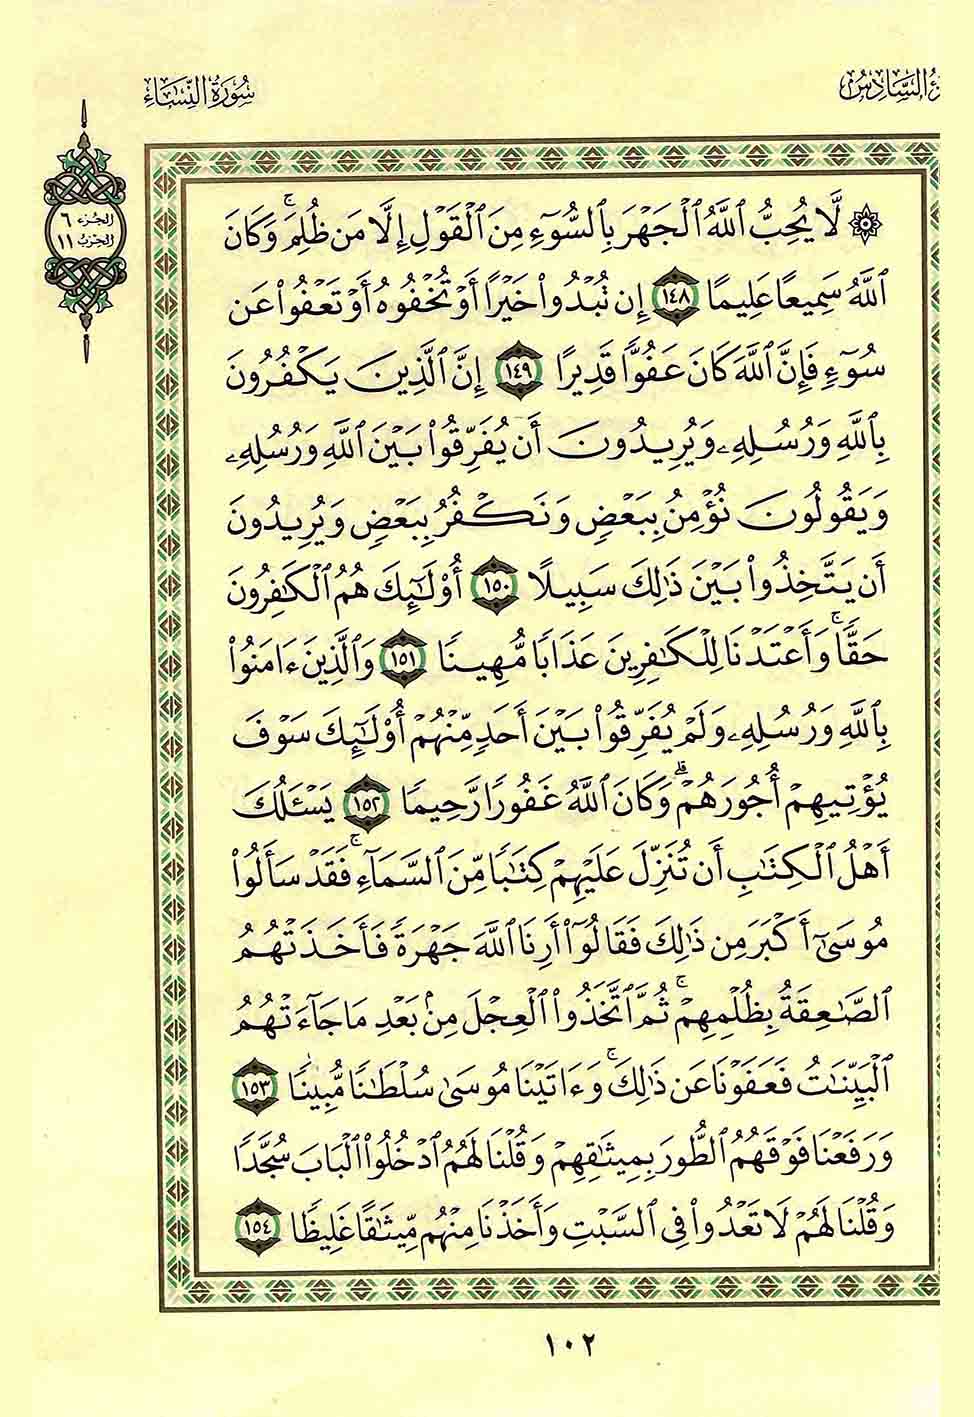 ءُ السَّادِسُ
سُورَةُ النِّسَاءِ
الجزء ٦
الحزب ١١
۞ لَّا يُحِبُّ ٱللَّهُ ٱلْجَهْرَ بِٱلسُّوٓءِ مِنَ ٱلْقَوْلِ إِلَّا مَن ظُلِمَ ۚ وَكَانَ
ٱللَّهُ سَمِيعًا عَلِيمًا ١٤٨ إِن تُبْدُوا۟ خَيْرًا أَوْ تُخْفُوهُ أَوْ تَعْفُوا۟ عَن
سُوٓءٍ فَإِنَّ ٱللَّهَ كَانَ عَفُوًّا قَدِيرًا ١٤٩ إِنَّ ٱلَّذِينَ يَكْفُرُونَ
بِٱللَّهِ وَرُسُلِهِۦ وَيُرِيدُونَ أَن يُفَرِّقُوا۟ بَيْنَ ٱللَّهِ وَرُسُلِهِۦ
وَيَقُولُونَ نُؤْمِنُ بِبَعْضٍ وَنَكْفُرُ بِبَعْضٍ وَيُرِيدُونَ
أَن يَتَّخِذُوا۟ بَيْنَ ذَٰلِكَ سَبِيلًا ١٥٠ أُو۟لَٰٓئِكَ هُمُ ٱلْكَٰفِرُونَ
حَقًّا ۚ وَأَعْتَدْنَا لِلْكَٰفِرِينَ عَذَابًا مُّهِينًا ١٥١ وَٱلَّذِينَ ءَامَنُوا۟
بِٱللَّهِ وَرُسُلِهِۦ وَلَمْ يُفَرِّقُوا۟ بَيْنَ أَحَدٍ مِّنْهُمْ أُو۟لَٰٓئِكَ سَوْفَ
يُؤْتِيهِمْ أُجُورَهُمْ ۗ وَكَانَ ٱللَّهُ غَفُورًا رَّحِيمًا ١٥٢ يَسْـَٔلُكَ
أَهْلُ ٱلْكِتَٰبِ أَن تُنَزِّلَ عَلَيْهِمْ كِتَٰبًا مِّنَ ٱلسَّمَآءِ ۚ فَقَدْ سَأَلُوا۟
مُوسَىٰٓ أَكْبَرَ مِن ذَٰلِكَ فَقَالُوٓا۟ أَرِنَا ٱللَّهَ جَهْرَةً فَأَخَذَتْهُمُ
ٱلصَّٰعِقَةُ بِظُلْمِهِمْ ۚ ثُمَّ ٱتَّخَذُوا۟ ٱلْعِجْلَ مِنۢ بَعْدِ مَا جَآءَتْهُمُ
ٱلْبَيِّنَٰتُ فَعَفَوْنَا عَن ذَٰلِكَ ۚ وَءَاتَيْنَا مُوسَىٰ سُلْطَٰنًا مُّبِينًا ١٥٣
وَرَفَعْنَا فَوْقَهُمُ ٱلطُّورَ بِمِيثَٰقِهِمْ وَقُلْنَا لَهُمُ ٱدْخُلُوا۟ ٱلْبَابَ سُجَّدًا
وَقُلْنَا لَهُمْ لَا تَعْدُوا۟ فِى ٱلسَّبْتِ وَأَخَذْنَا مِنْهُم مِّيثَٰقًا غَلِيظًا ١٥٤
١٠٢